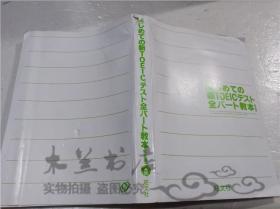 はじめての新TOEICテスト全パート教本
はじめての
新TOEICテスト
全パート教本
旺文社
木兰书店
实物拍摄 盗图必究